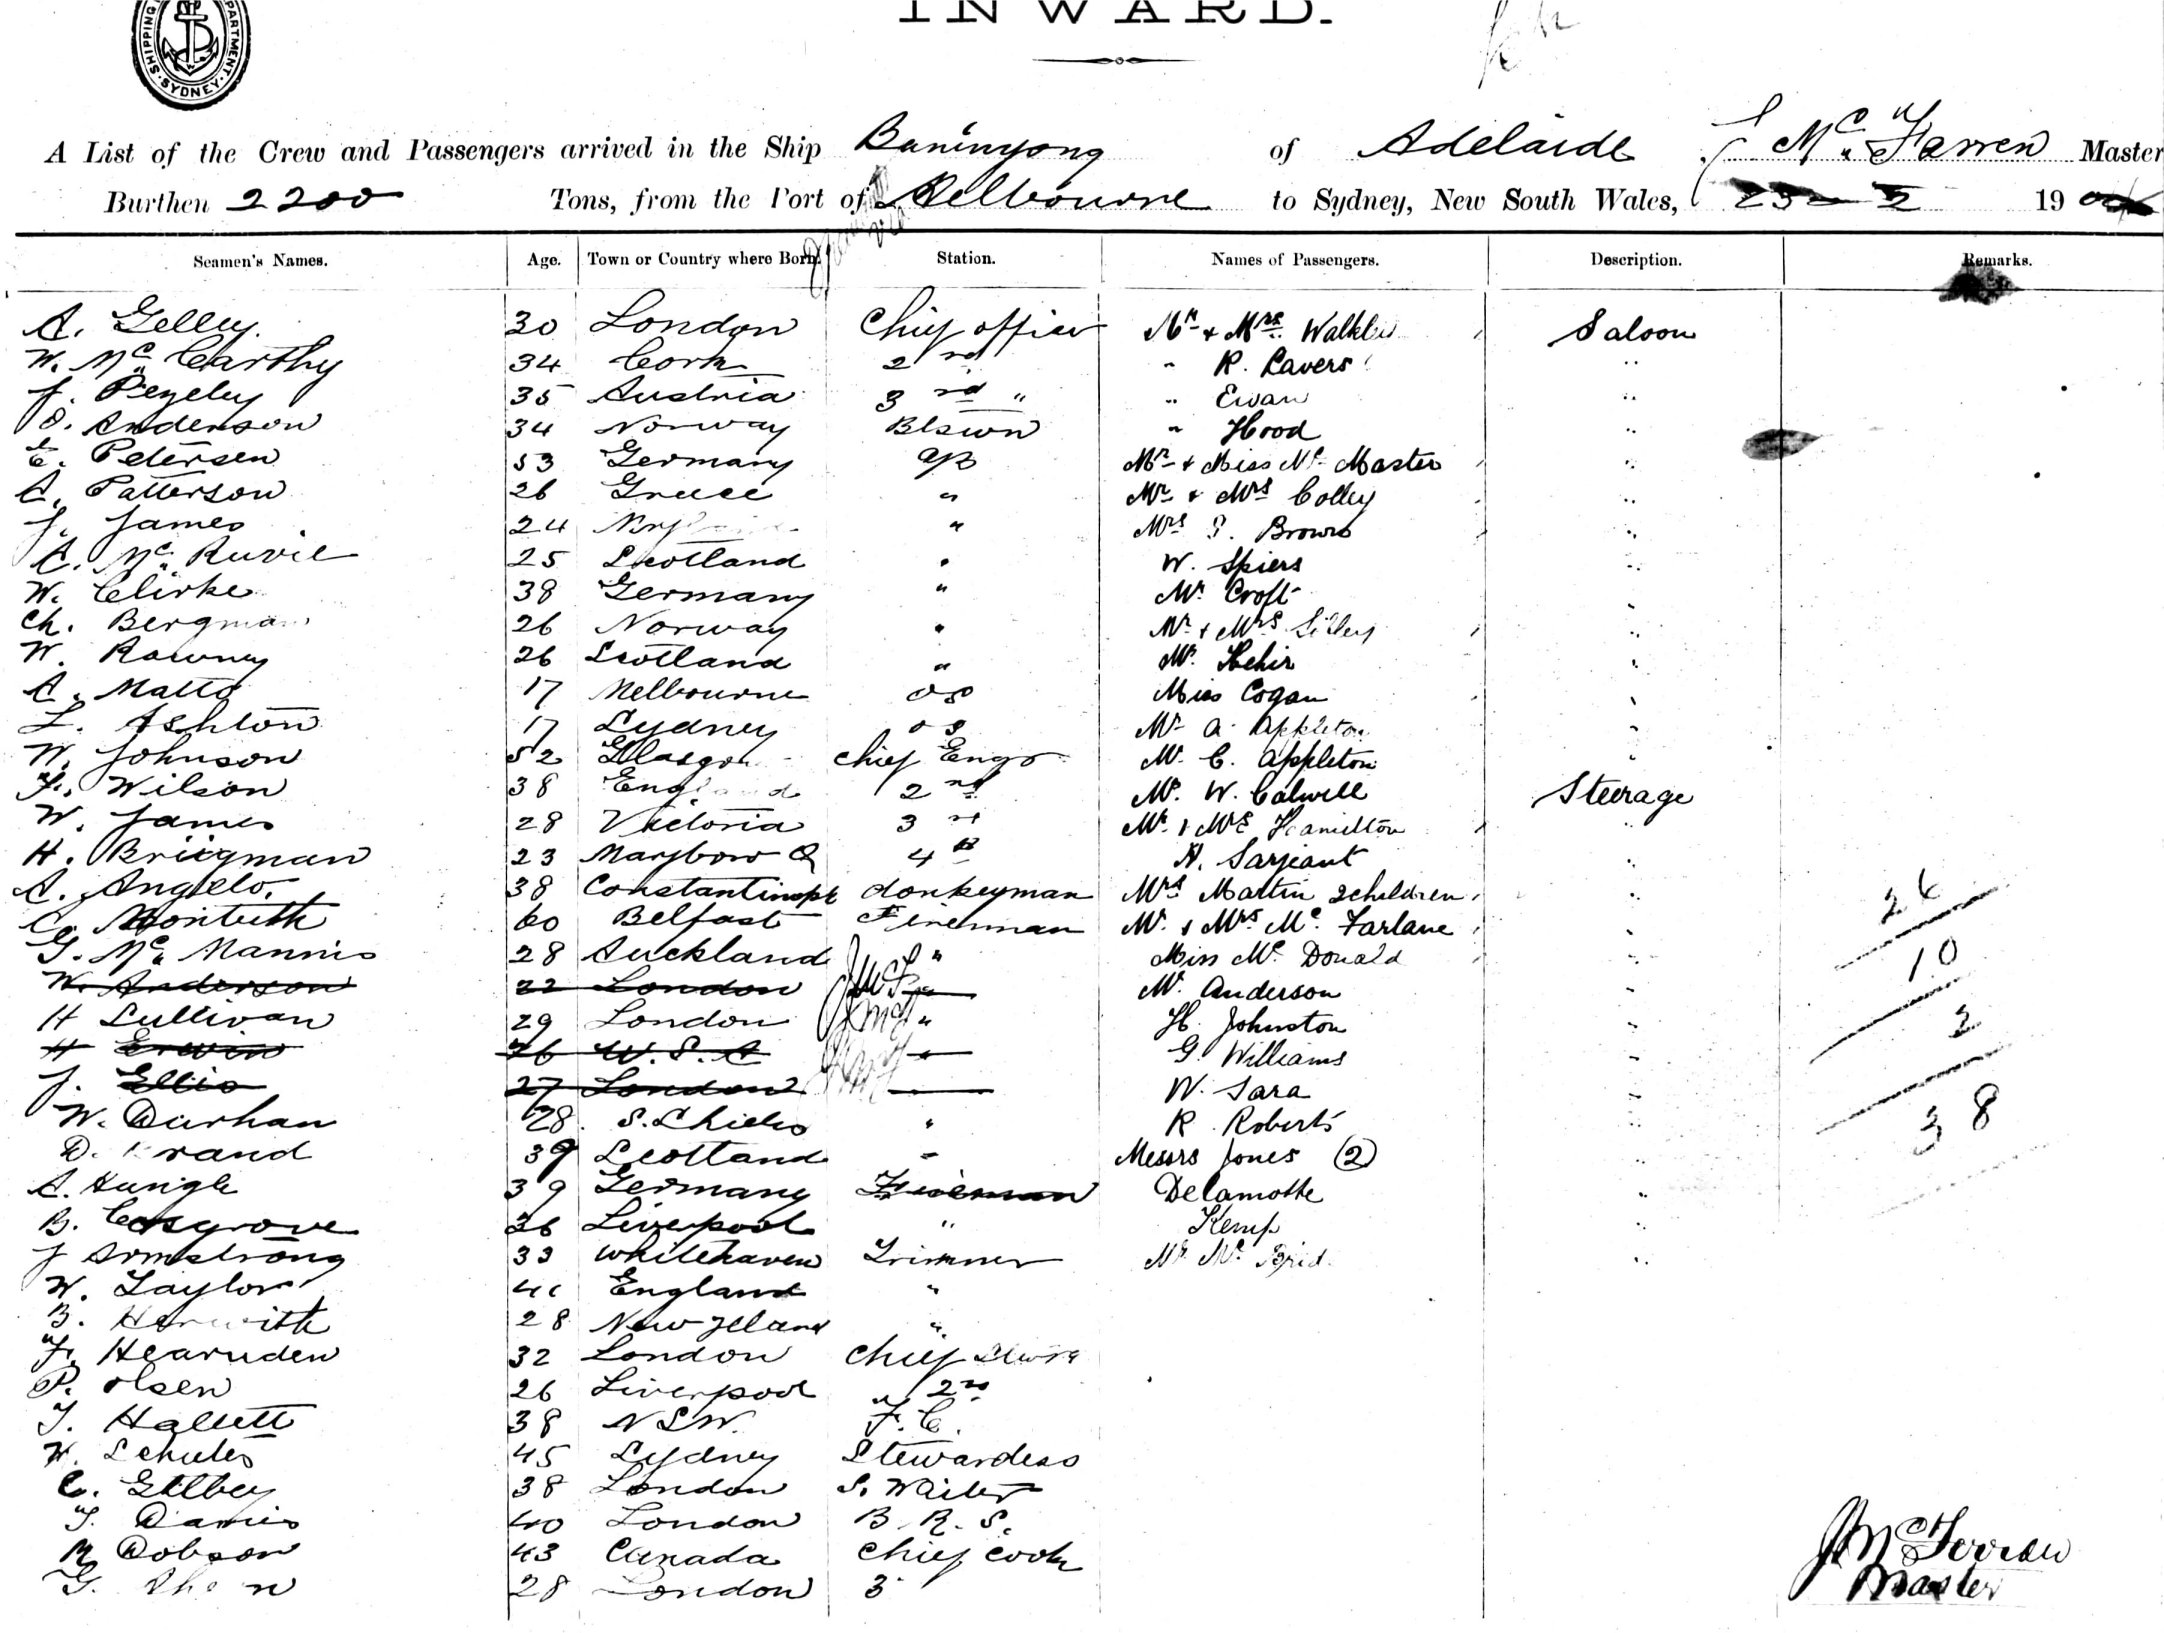 INWARD.
SHIPPING DEPARTMENT. SYDNEY
A List of the Crew and Passengers arrived in the Ship Buninyong of Adelaide Mc Farren Master
Burthen 2200 Tons, from the Port of Melbourne to Sydney, New South Wales, 23 2 19
Seamen's Names. Age. Town or Country where Born. Station. Names of Passengers. Description. Remarks.
A. Gelley. 30 London Chief officer Mr & Mrs. Saloon
W. Mc Carthy 34 Cork 2nd " R. Lavers "
J. Pezeley 35 Austria 3rd " " Ewan "
O. Anderson 34 Norway " Hood "
E. Petersen 53 Germany AB Mr & Miss Mc Master "
A. Patterson 26 Greece " Mr & Mrs Colley "
J. James 24 " Mrs Brown "
A. Mc 25 Scotland " W. Spiers "
W. Clirke 38 Germany " Mr Croft "
Ch. Bergman 26 Norway " Mr & Mrs "
W. Rawney 26 Scotland " Mr. Hehir "
A. Matto 17 Melbourne OS Miss Cogan "
L. Ashton 17 Sydney OS Mr A. Appleton "
W. Johnson 52 Glasgow Chief Engr Mr. C. Appleton "
F. Wilson 38 England 2nd Mr. W. Calwell Steerage
W. James 28 Victoria 3rd Mr & Mrs Hamilton "
H. Briegman 23 Marybow Q 4th H. Sarjeant "
A. Angelo. 38 Constantinople donkeyman Mrs Martin 2 children "
C. Monteith 60 Belfast Fireman Mr. & Mrs Mc Farlane " 26
G. Mc Mannis 28 Auckland " Miss Mc Donald " 10
W. Anderson 22 London " Mr. Anderson "
H Sullivan 29 London " H. Johnston " 2
H Erwin 26 U.S.A " G. Williams "
J. Ellis 27 London W. Sara "
W. Durhan 28 S. Shields " R. Roberts " 38
D. 39 Scotland " Messrs Jones (2) "
A. Hungle 39 Germany Fireman Delamotte "
B. Cosgrove 26 Liverpool " Kemp "
J Armstrong 33 Whitehaven Trimmer Mr Mc "
W. Taylor 41 England "
B. 28 New Zeland "
F. Hearnden 32 London Chief
P. Olsen 26 Liverpool 2nd
T. Hallett 38 NSW. F.C.
W. Schultes 45 Sydney Stewardess
C. Gilbey 38 London S. Waiter
T. Davies 40 London B.R.S.
R Dobson 43 Canada Chief Cook
G. 28 London 3
J McFarren
Master